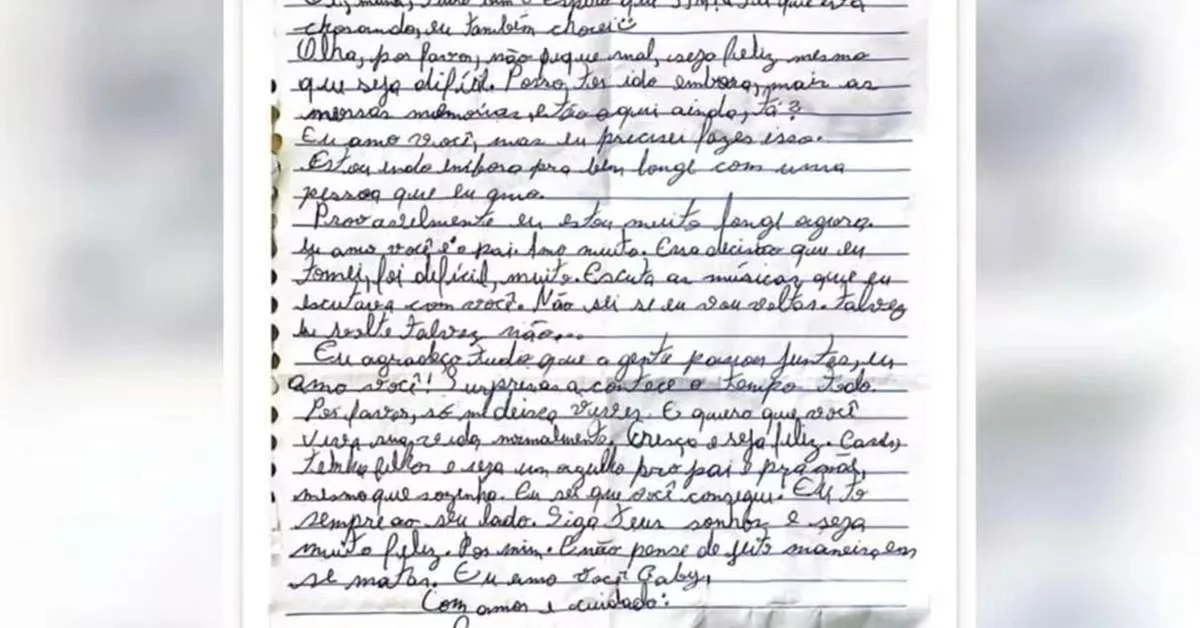 chorando, eu também chorei
Olha, por favor, não fique mal, seja feliz mesmo
que seja difícil. Posso ter ido embora, mais as
nossas memórias estão aqui ainda, tá?
Eu amo você, mas eu precisei fazer isso.
Estou indo embora pra bem longe com uma
pessoa que eu amo.
Provavelmente eu estou muito longe agora.
Eu amo você e o pai. Amo muito. Essa decisão que eu
tomei, foi difícil, muito. Escuta as músicas que eu
escutava com você. Não sei se eu vou voltar. Talvez
eu volte talvez não...
Eu agradeço tudo que a gente passou juntos, eu
amo você! Surpresas acontece o tempo todo.
Por favor, só me deixa viver. E quero que você
viva sua vida normalmente. Cresça e seja feliz. Case,
tenha filhos e seja um orgulho pro pai e pra mãe,
mesmo que sozinha. Eu sei que você consegue. Eu to
sempre ao seu lado. Siga teus sonhos e seja
muito feliz. Por mim. E não pense de jeito maneira em
se matar. Eu amo você Gaby,
Com amor e cuidado: